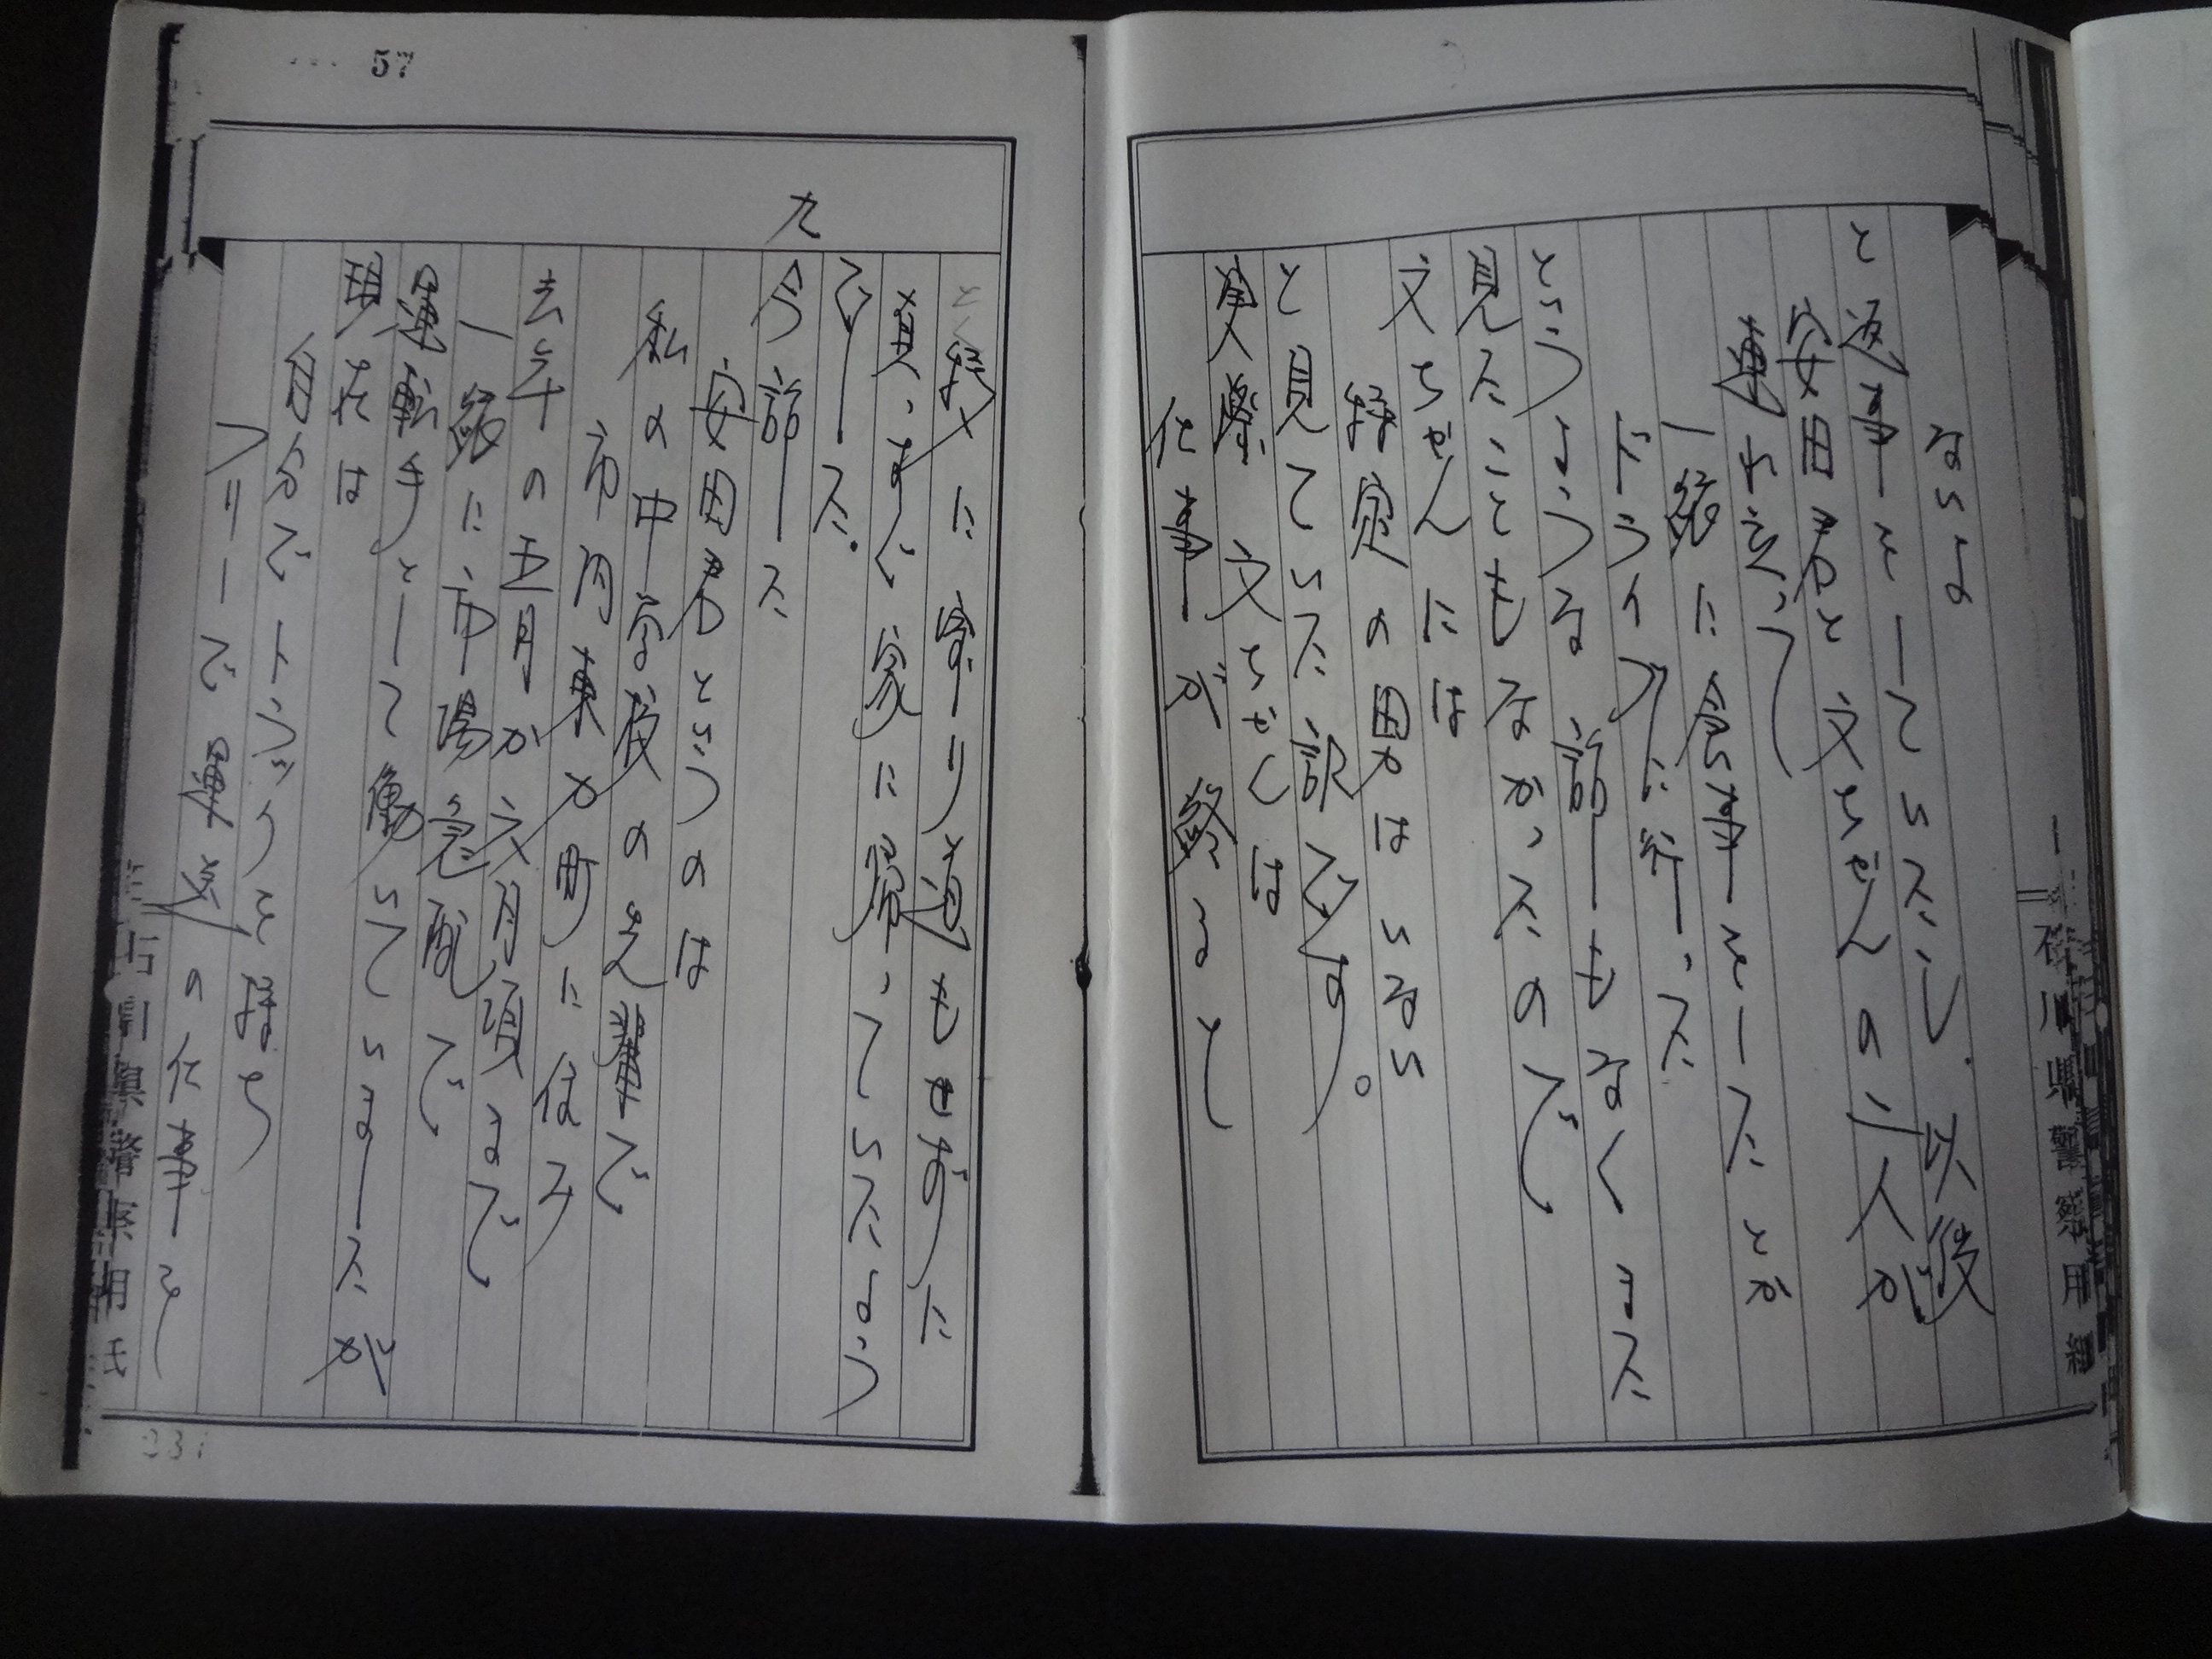 ないよ
と返事をしていたし、以後
安田君と文ちゃんの二人が
連れ立って
一緒に食事をしたとか
ドライブに行った
というような話しもなく また
見たこともなかったので
文ちゃんには
特定の男はいない
と見ていた訳です。
実際 文ちゃんは
仕事が終ると
石川県警察用紙
57
に寄り道もせずに
真っすぐ家に帰っていたよう
でした。
九
今話した
安田君というのは
私の中学校の先輩で
市内東力町に住み
去年の五月か六月頃まで
一緒に市場急配で
運転手として働いていましたが
現在は
自分でトラックを持ち
フリーで運送の仕事を
石川県警察用紙